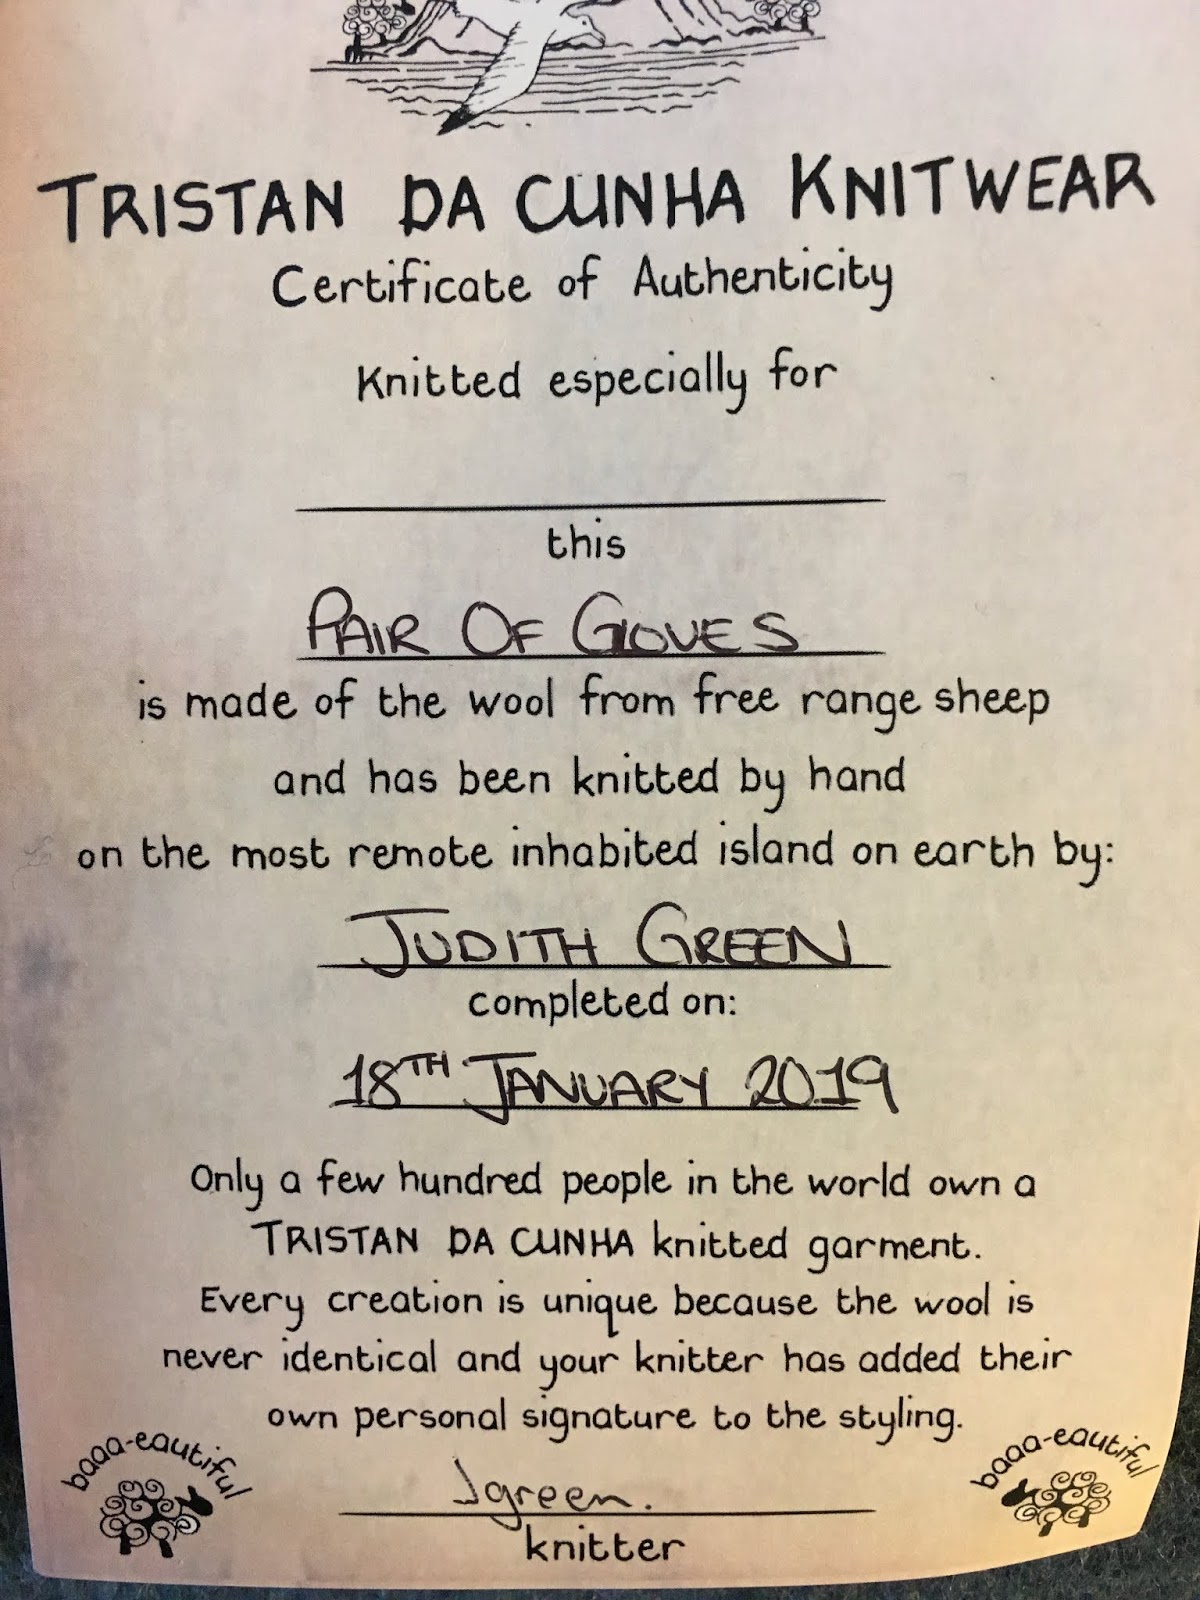 TRISTAN DA CUNHA KNITWEAR
Certificate of Authenticity
Knitted especially for
this
PAIR OF GLOVES
is made of the wool from free range sheep
and has been knitted by hand
on the most remote inhabited island on earth by:
JUDITH GREEN
completed on:
18TH JANUARY 2019
Only a few hundred people in the world own a
TRISTAN DA CUNHA knitted garment.
Every creation is unique because the wool is
never identical and your knitter has added their
own personal signature to the styling.
baaa-eautiful
baaa-eautiful
Jgreen.
knitter